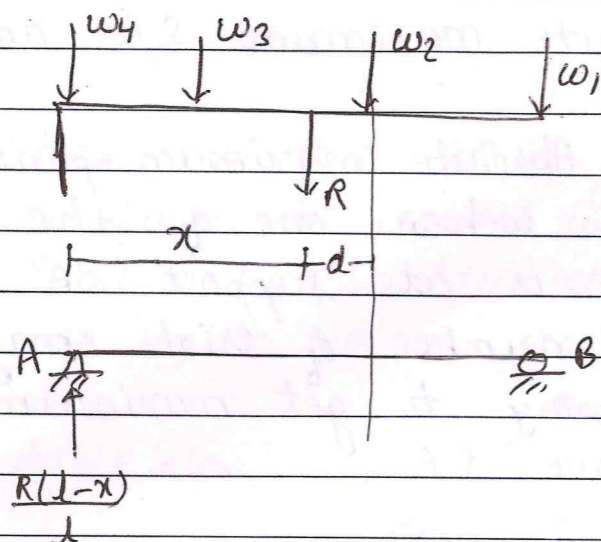 w4 w3 w2 w1
R
x d
A B
R(l-x)
l